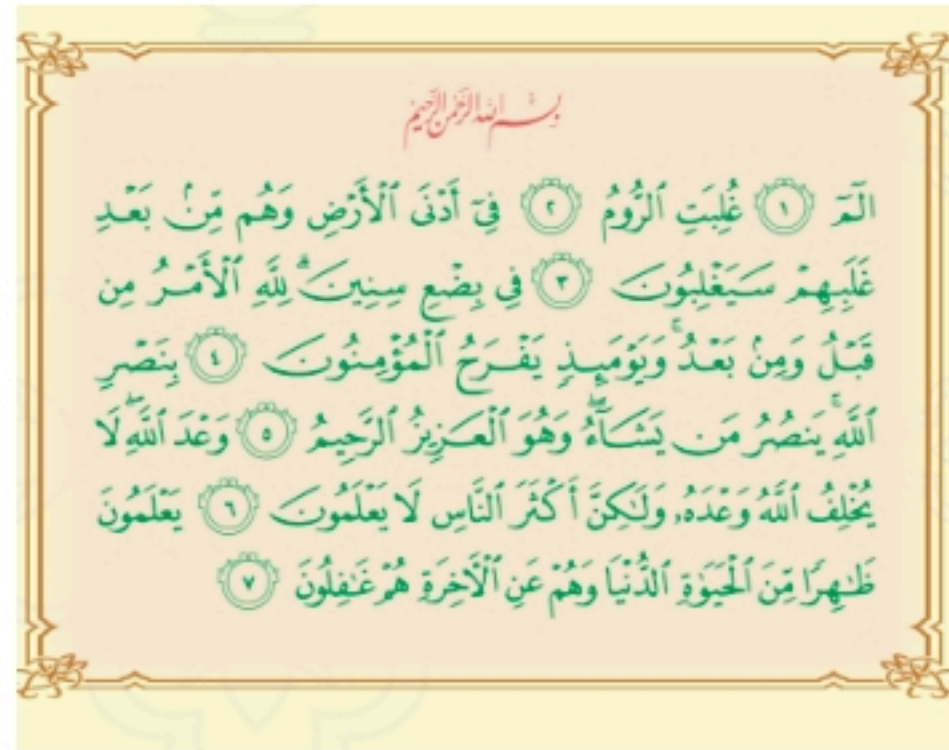 بِسْمِ اللهِ الرَّحْمٰنِ الرَّحِيْمِ
الٓمٓ ١ غُلِبَتِ ٱلرُّومُ ٢ فِىٓ أَدْنَى ٱلْأَرْضِ وَهُم مِّنۢ بَعْدِ
غَلَبِهِمْ سَيَغْلِبُونَ ٣ فِى بِضْعِ سِنِينَ ۗ لِلَّهِ ٱلْأَمْرُ مِن
قَبْلُ وَمِنۢ بَعْدُ ۚ وَيَوْمَئِذٍ يَفْرَحُ ٱلْمُؤْمِنُونَ ٤ بِنَصْرِ
ٱللَّهِ ۚ يَنصُرُ مَن يَشَآءُ ۖ وَهُوَ ٱلْعَزِيزُ ٱلرَّحِيمُ ٥ وَعْدَ ٱللَّهِ ۖ لَا
يُخْلِفُ ٱللَّهُ وَعْدَهُۥ وَلَٰكِنَّ أَكْثَرَ ٱلنَّاسِ لَا يَعْلَمُونَ ٦ يَعْلَمُونَ
ظَٰهِرًا مِّنَ ٱلْحَيَوٰةِ ٱلدُّنْيَا وَهُمْ عَنِ ٱلْءَاخِرَةِ هُمْ غَٰفِلُونَ ٧